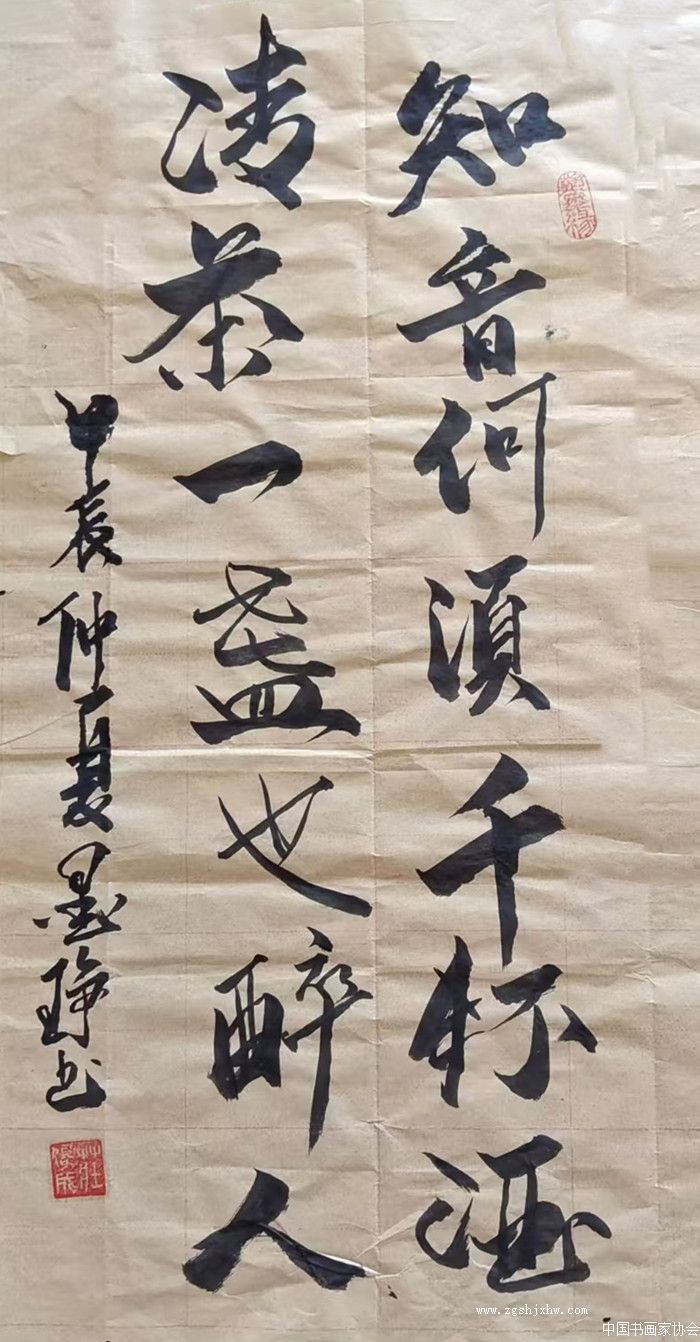 知音何須千杯酒
清茶一盏也醉人
甲辰仲夏墨琤书
www.zgshjxhw.com
中国书画家协会